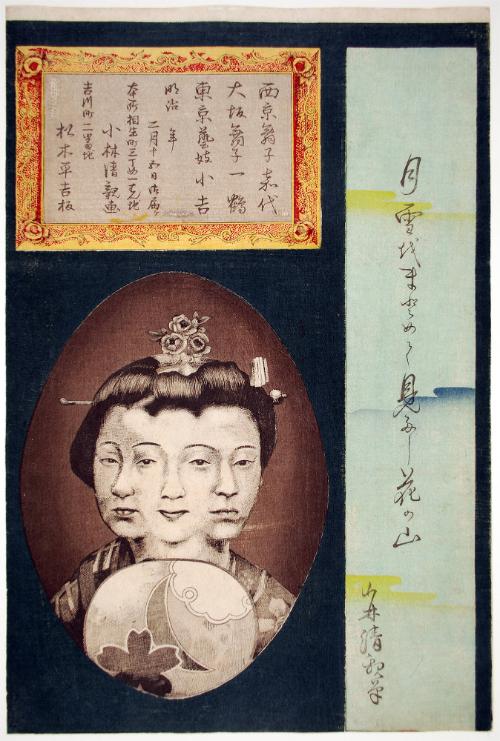 月雪代まとめて見るし花の山
小林清親筆
西京舞子寿代
大坂舞子一鶴
東京藝妓小吉
明治 年 二月十五日御届
本所相生町三丁め一番地
小林清親画
吉川町二番地
松木平吉板